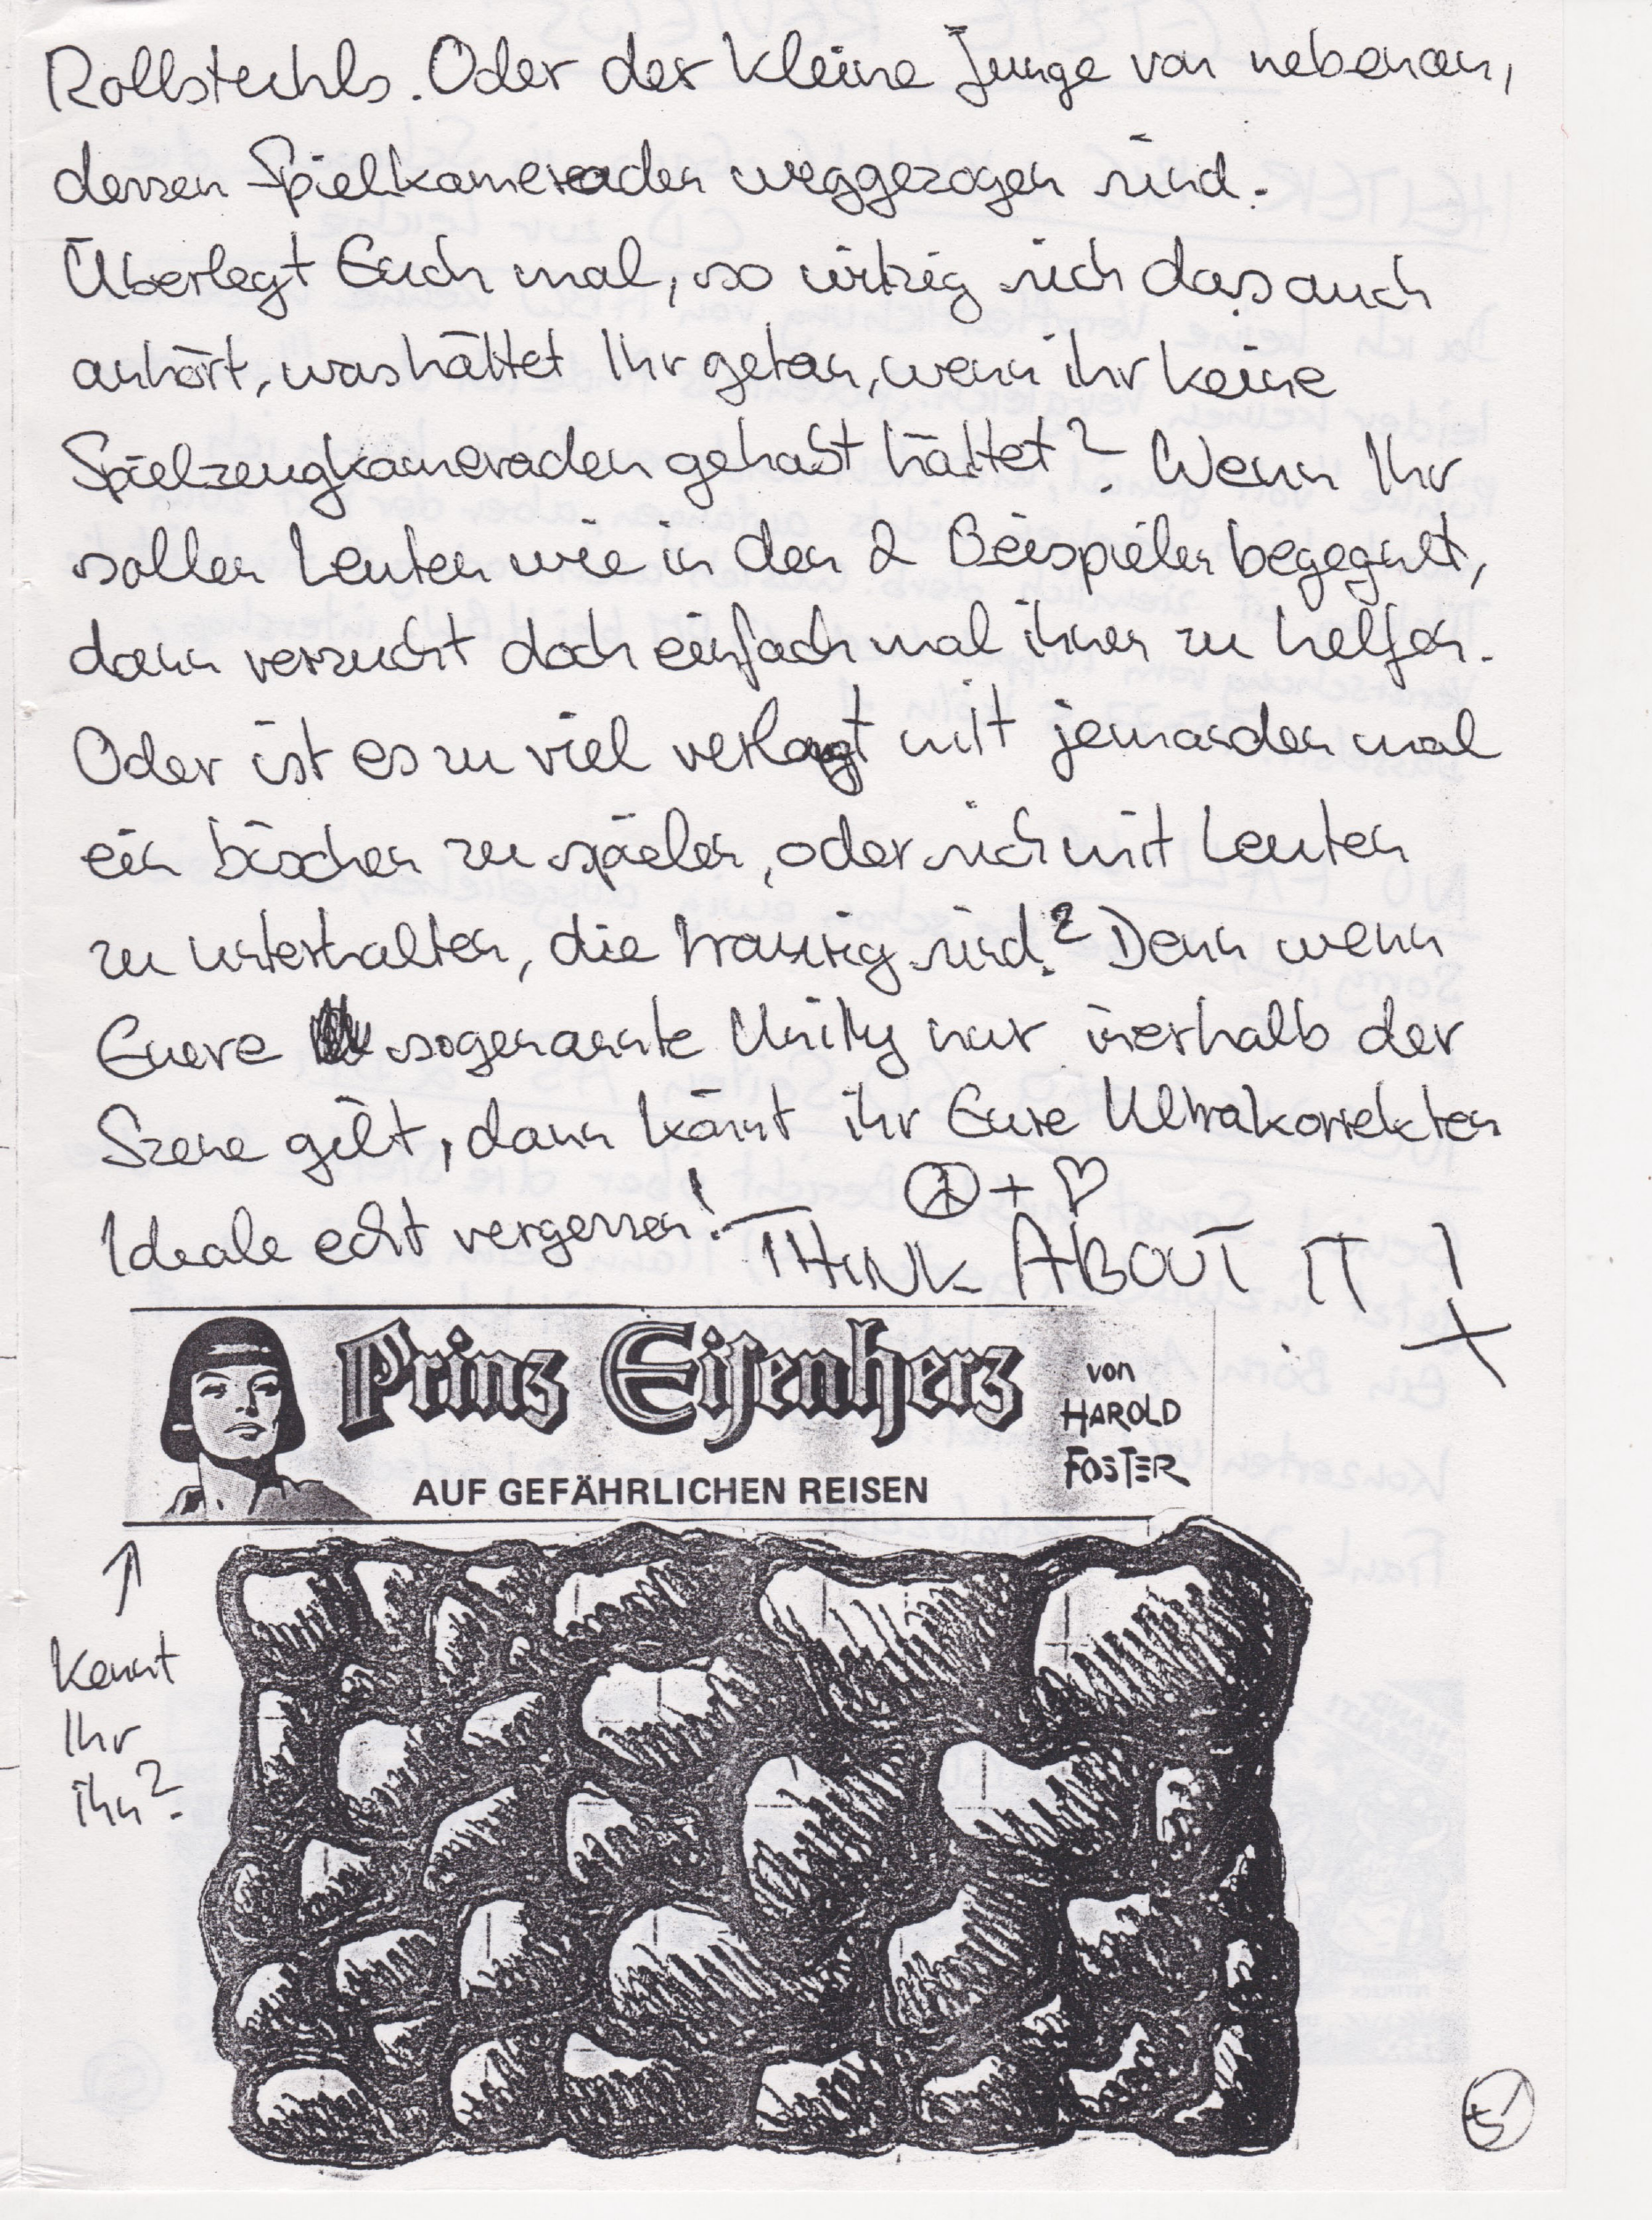 Rollstuhls. Oder der kleine Junge von nebenan,
dessen Spielkameraden weggezogen sind.
Überlegt Euch mal, so witzig sich das auch
anhört, was hättet Ihr getan, wenn ihr keine
Spielzeugkameraden gehabt hättet? Wenn Ihr
sollen Leuten wie in den 2 Beispielen begegnet,
dann versucht doch einfach mal ihnen zu helfen.
Oder ist es zu viel verlangt mit jemanden mal
ein bischen zu spielen, oder sich mit Leuten
zu unterhalten, die traurig sind? Denn wenn
Euere sogenannte Unity nur inerhalb der
Szene gilt, dann könnt ihr Eure Ultrakorrekten
Ideale echt vergessen! ☮ + ♡
THINK ABOUT IT!
Prinz Eisenherz
von
HAROLD
FOSTER
AUF GEFÄHRLICHEN REISEN
Kennt
Ihr
ihn?